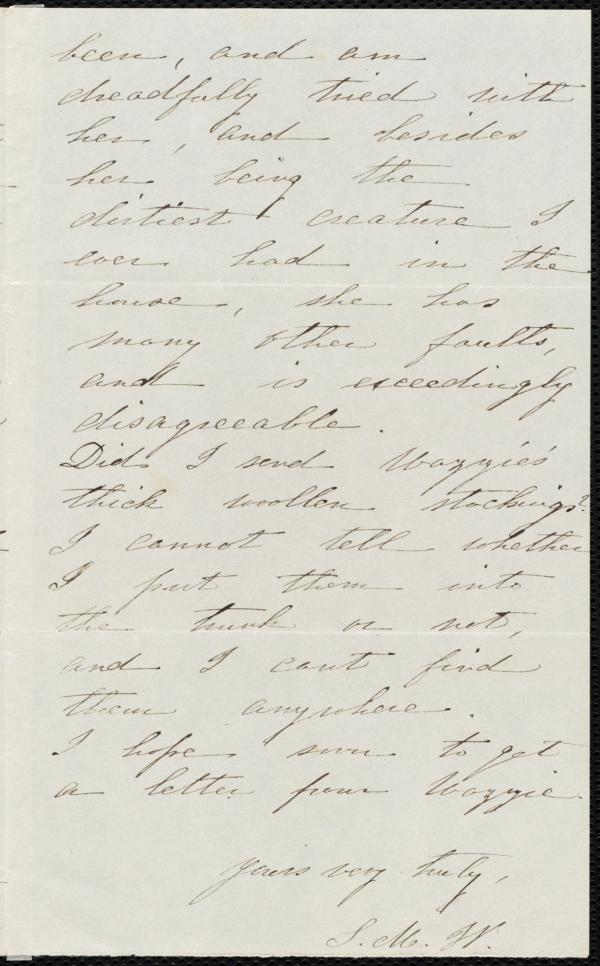 been, and am
dreadfully tried with
her, and besides
her being the
dirtiest creature I
ever had in the
house, she has
many other faults,
and is exceedingly
disagreeable.
Did I send Wazzie's
thick woollen stockings?
I cannot tell whether
I put them into
the trunk or not,
and I can't find
them anywhere.
I hope soon to get
a letter from Wazzie.
Yours very truly,
S. M. W.